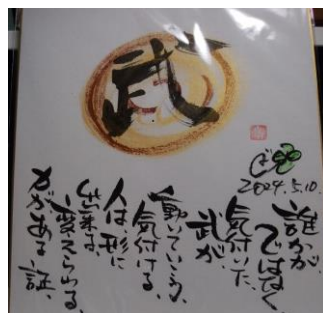 武
2024.5.10.
誰かが
ではなく
気付いた
武が
動いていこう、
気付ける、
人は、形に
出来る、
変えられる、
力がある証、